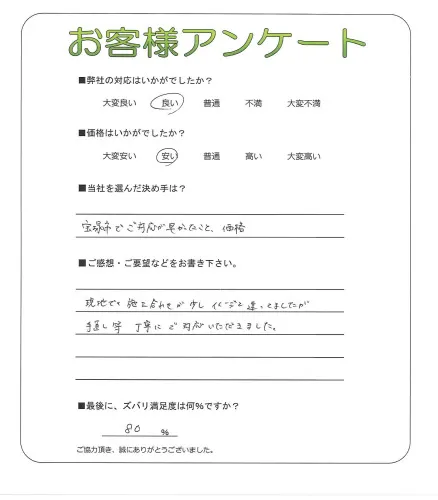 お客様アンケート
■弊社の対応はいかがでしたか？
大変良い 良い 普通 不満 大変不満
■価格はいかがでしたか？
大変安い 安い 普通 高い 大変高い
■当社を選んだ決め手は？
宝塚市でご対応が早かったこと、価格
■ご感想・ご要望などをお書き下さい。
現地での 打合わせが少しイメージと違ってましたが
手直し等 丁寧にご対応いただきました。
■最後に、ズバリ満足度は何%ですか？
80 %
ご協力頂き、誠にありがとうございました。